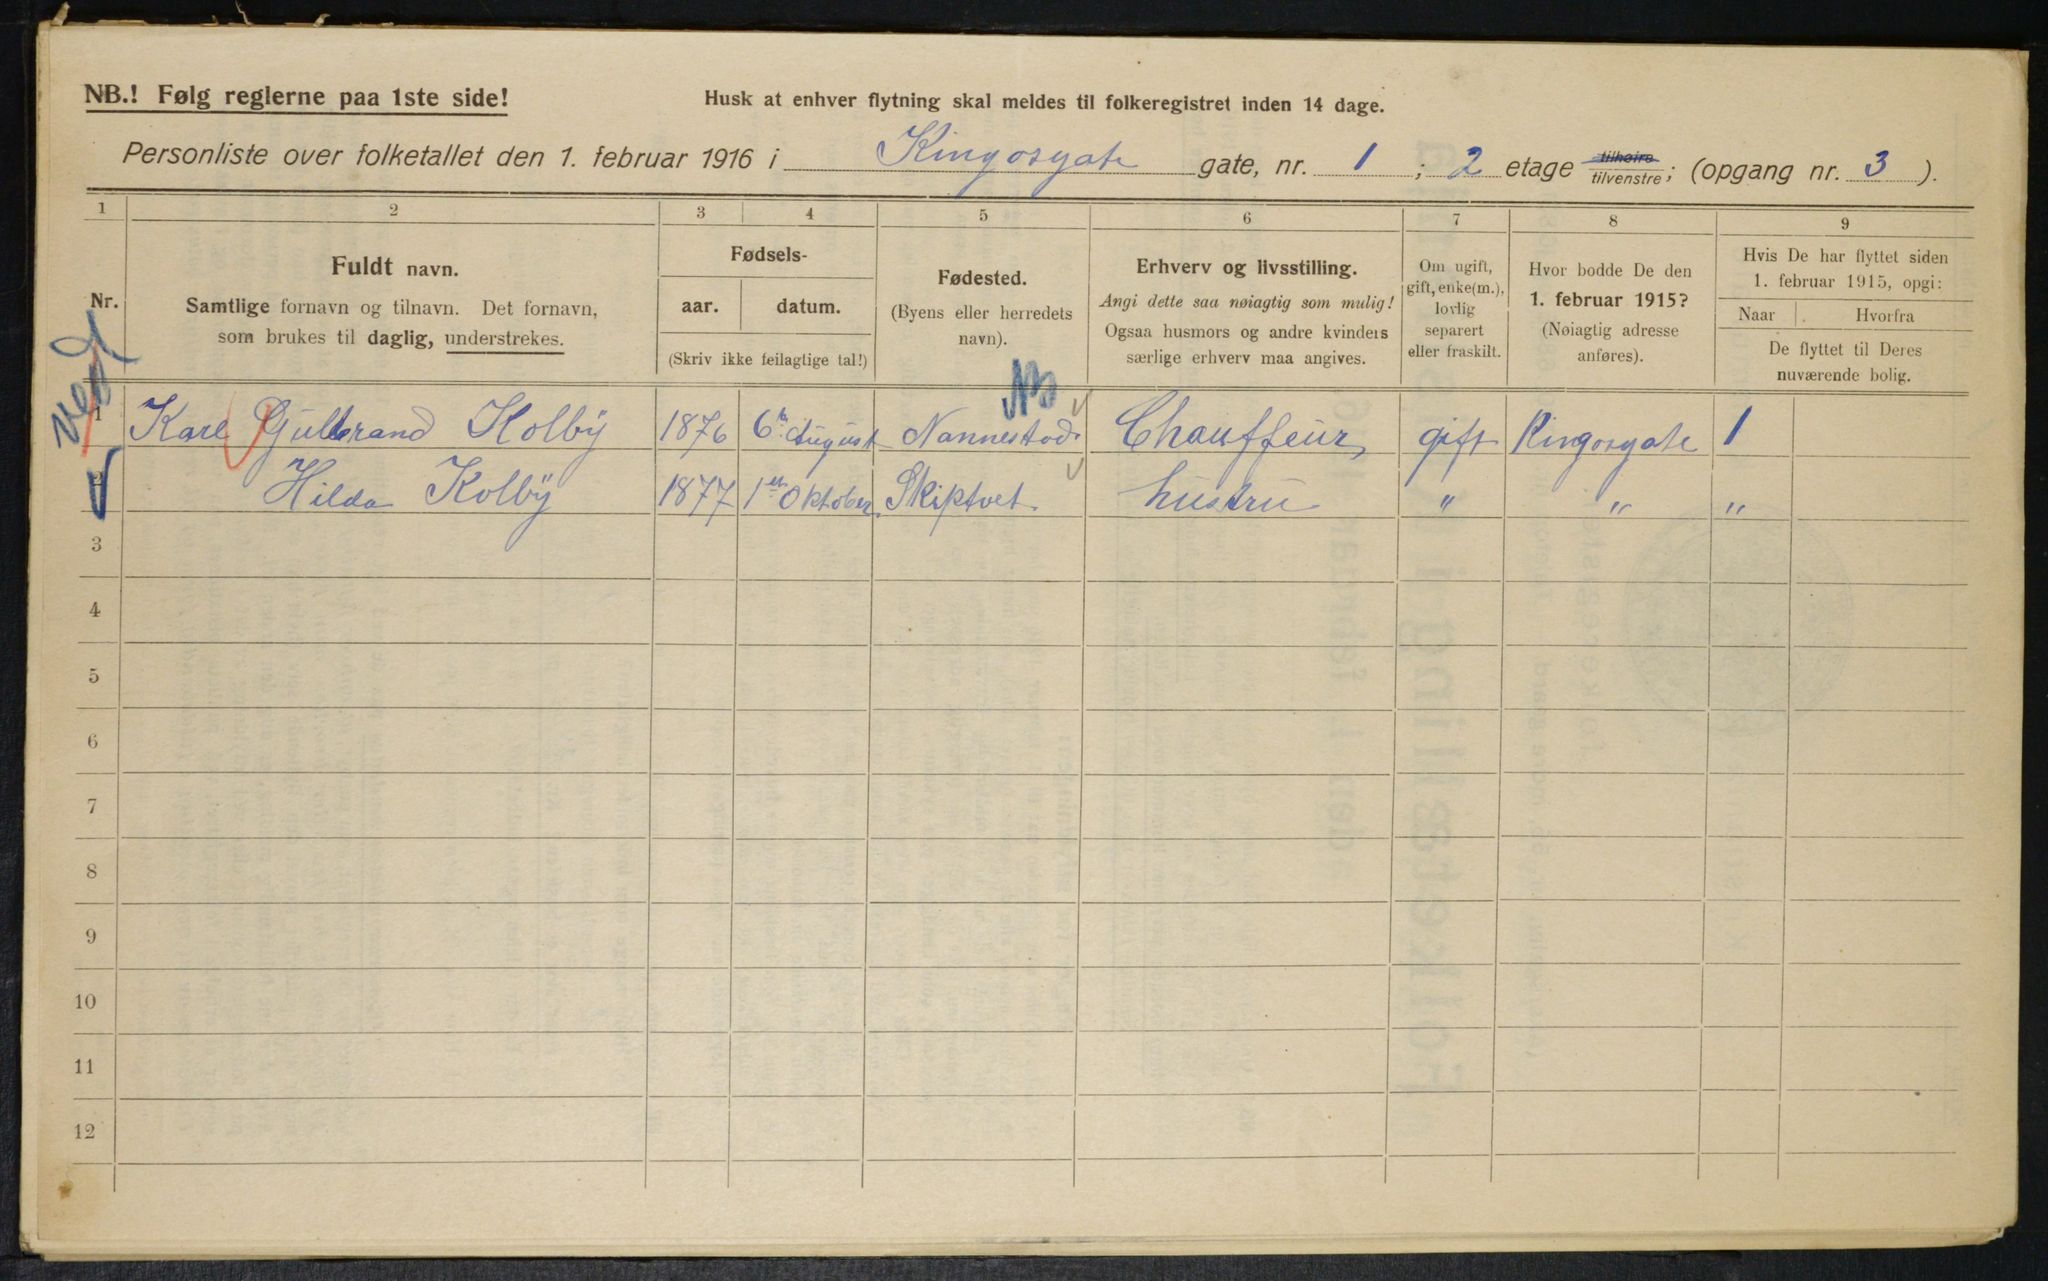 NB.! Følg reglerne paa 1ste side!
Husk at enhver flytning skal meldes til folkeregistret inden 14 dage.
Personliste over folketallet den 1. februar 1916 i Kingosgate gate, nr. 1 ; 2 etage tilhøire tilvenstre; (opgang nr. 3 ).
1 2 3 4 5 6 7 8 9
Nr.
Fuldt navn.
Samtlige fornavn og tilnavn. Det fornavn,
som brukes til daglig, understrekes.
Fødsels-
aar. datum.
(Skriv ikke feilagtige tal!)
Fødested.
(Byens eller herredets
navn).
Erhverv og livsstilling.
Angi dette saa nøiagtig som mulig!
Ogsaa husmors og andre kvinders
særlige erhverv maa angives.
Om ugift,
gift, enke(m.),
lovlig
separert
eller fraskilt.
Hvor bodde De den
1. februar 1915?
(Nøiagtig adresse
anføres).
Hvis De har flyttet siden
1. februar 1915, opgi:
Naar Hvorfra
De flyttet til Deres
nuværende bolig.
NB
1 Karl Gulbrand Kolby 1876 6te August Nannestad Chauffeur gift Kingosgate 1
2 Hilda Kolby 1877 1ste Oktober Skiptvet hustru " " "
3
4
5
6
7
8
9
10
11
12